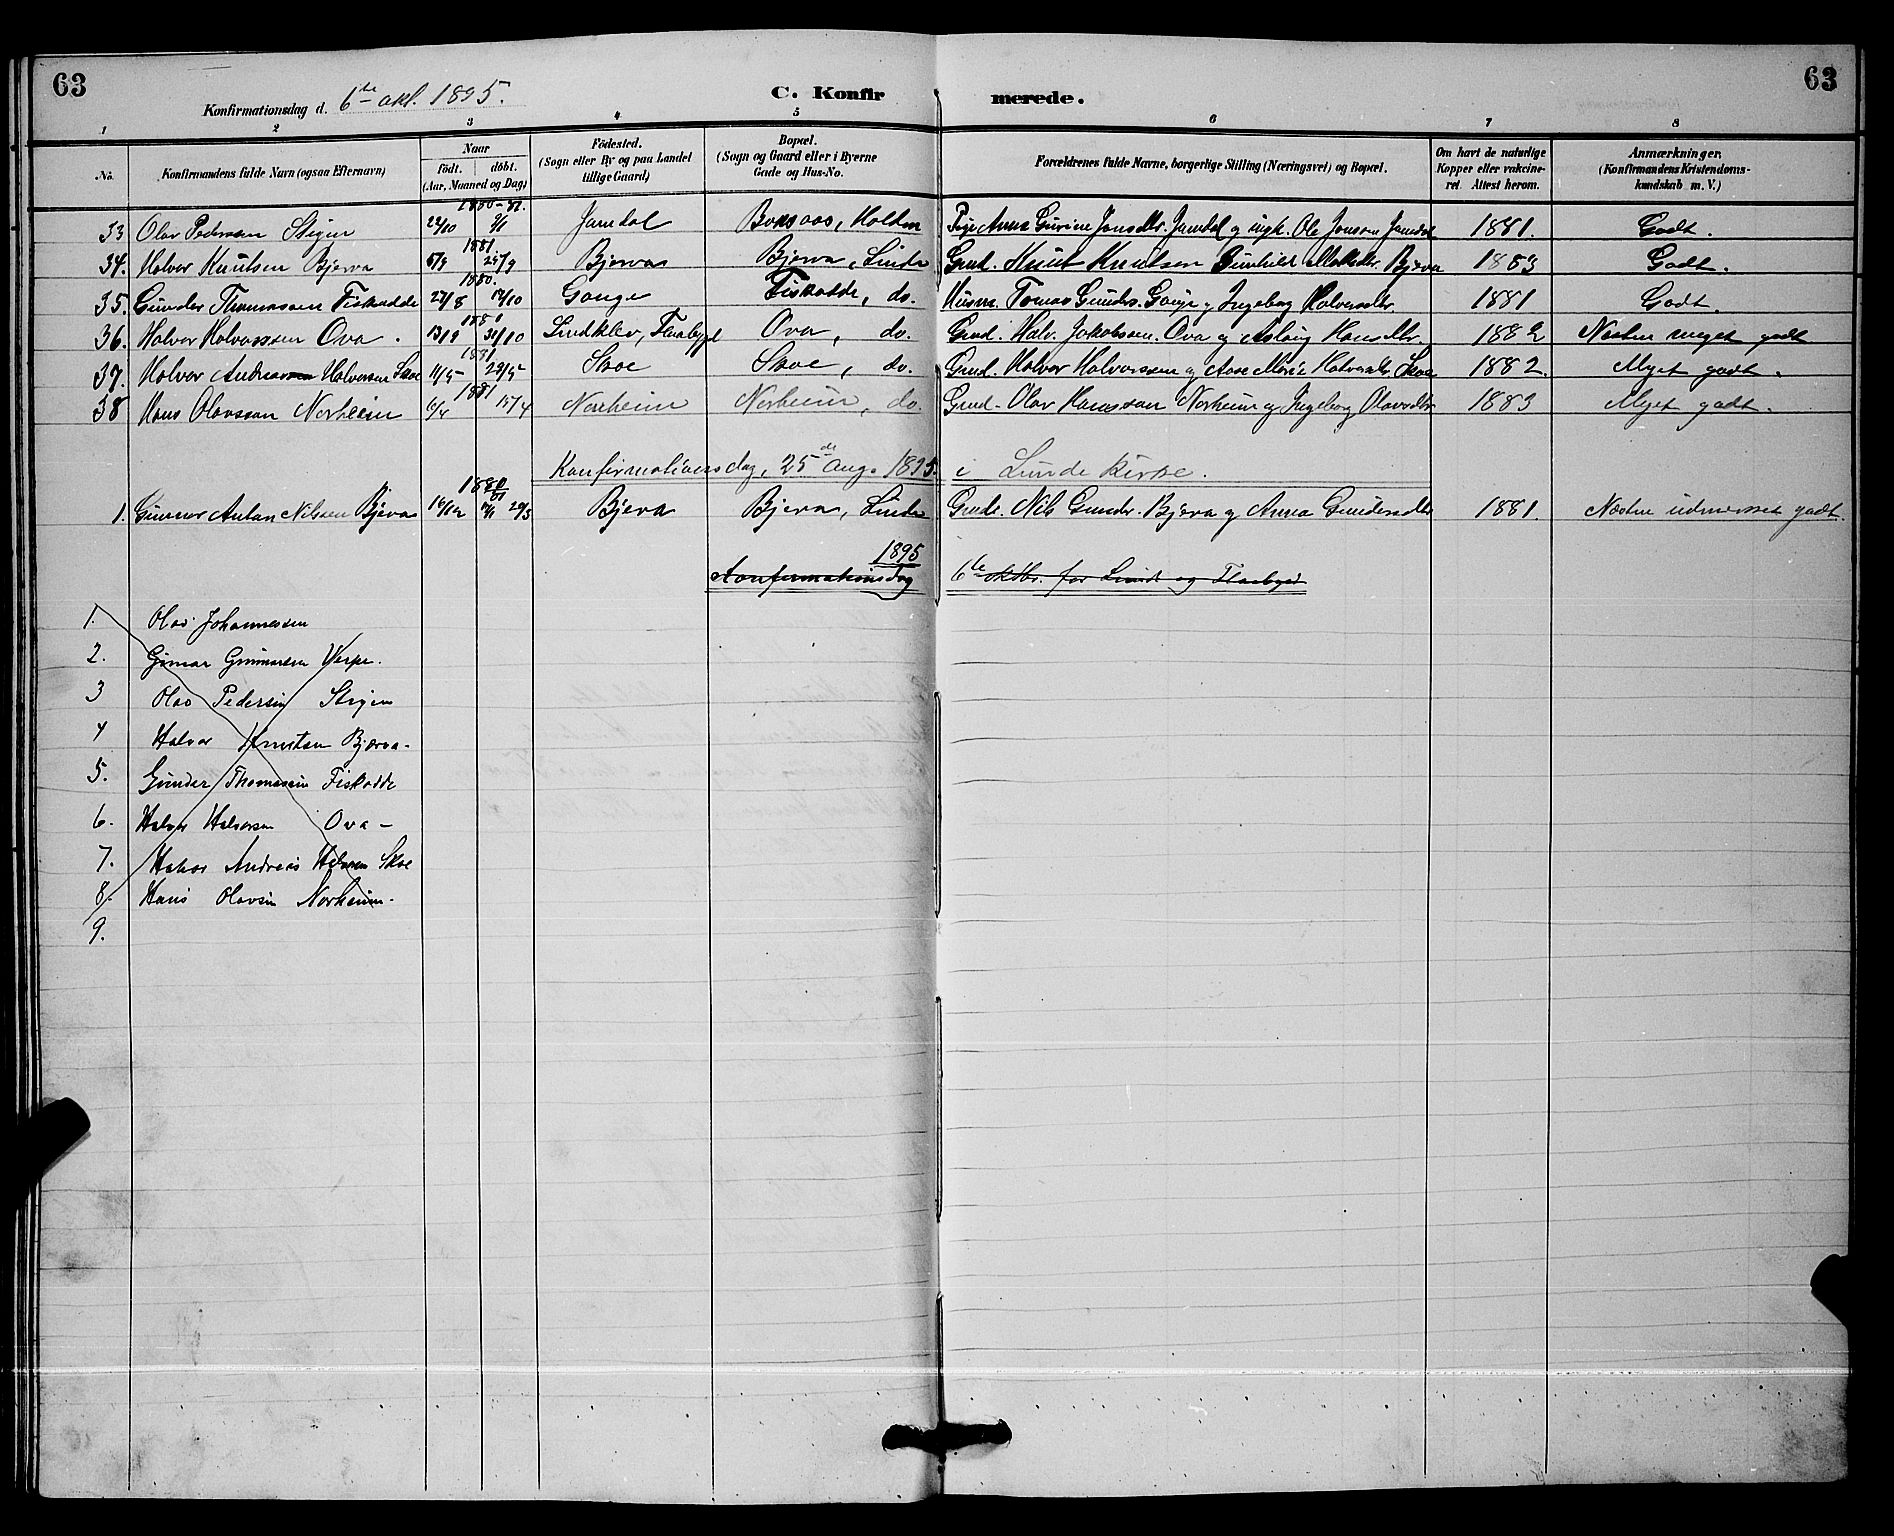 63 Konfirmationsdag d. 6te okt. 1895. C. Konfirmerede. 63
1 2 3 4 5 6 7 8
No. Konfirmandens fulde Navn (ogsaa Efternavn) Naar født. døbt. (Aar, Maaned og Dag) Fødested. (Sogn eller By og paa Landet tillige Gaard) Bopæl. (Sogn og Gaard eller i Byerne Gade og Hus-No. Forældrenes fulde Navne, borgerlige Stilling (Næringsvei) og Bopæl. Om havt de naturlige Kopper eller vakcineret. Attest herom. Anmærkninger. (Konfirmandens Kristendomskundskab m. V.)
33 Olav Pedersen Stigen 1880-81. 22/10 2/1 Jamdal Bonsaas, Holden Pige Anna Gurine Jonsdtr. Jamdal og ungk. Ole Jonsen Jamdal 1881. Godt.
34. Halvor Knutsen Bjerva 1881 5/9 25/9 Bjerva Bjerva, Lunde Grd. Knut Knutsen Gunhild Bjerva 1883 Godt.
35. Gunder Thomassen Fiskodde 1880. 27/8 17/10 Gonge Fiskodde, do. Husm. Tomas Gunders. Gonge og Ingeborg Halvorsdtr. 1881 Godt.
36. Halvor Halvorsen Ova. 1880 13/9 31/10 Lindklev, Flaabygd Ova, do. Grd. Halv. Jakobsen Ova og Aslaug Hansdtr. 1882 Næsten meget godt
37. Halvor Andreas Halvorsen Skoe 1881 11/5 29/5 Skoe Skoe, do. Grd. Halvor Halvorssen og Aase Marie Halvorsdtr. Skoe 1882. Myet godt.
38 Hans Olavssøn Norheim 1881 6/4 15/4 Norheim Norheim, do. Grd. Olav Hanssøn Norheim og Ingeborg Olavsdtr 1883 Myet godt.
Konfirmationsdag, 25de Aug. 1895. i Lunde kirke.
1. Gunnar Anton Nilssen Bjerva 1880/81 16/12 29/3 Bjerva Bjerva, Lunde Grd. Nils Gundr. Bjerva og Anna Gundersdtr 1881. Næsten udmerket godt.
1895
Konfirmationsdag 6te oktbr. for Lunde og Flaabygd
1. Olav Johannessen
2. Gunnar Gunnarsen Verpe.
3 Olav Pedersen Stigen
4 Halvor Knutsen Bjerva.
5. Gunder Thomassen Fiskodde
6. Halvor Halvorsen Ova -
7. Halvor Andreas Halvorsen Skoe
8. Hans Olavsen Norheim.
9.